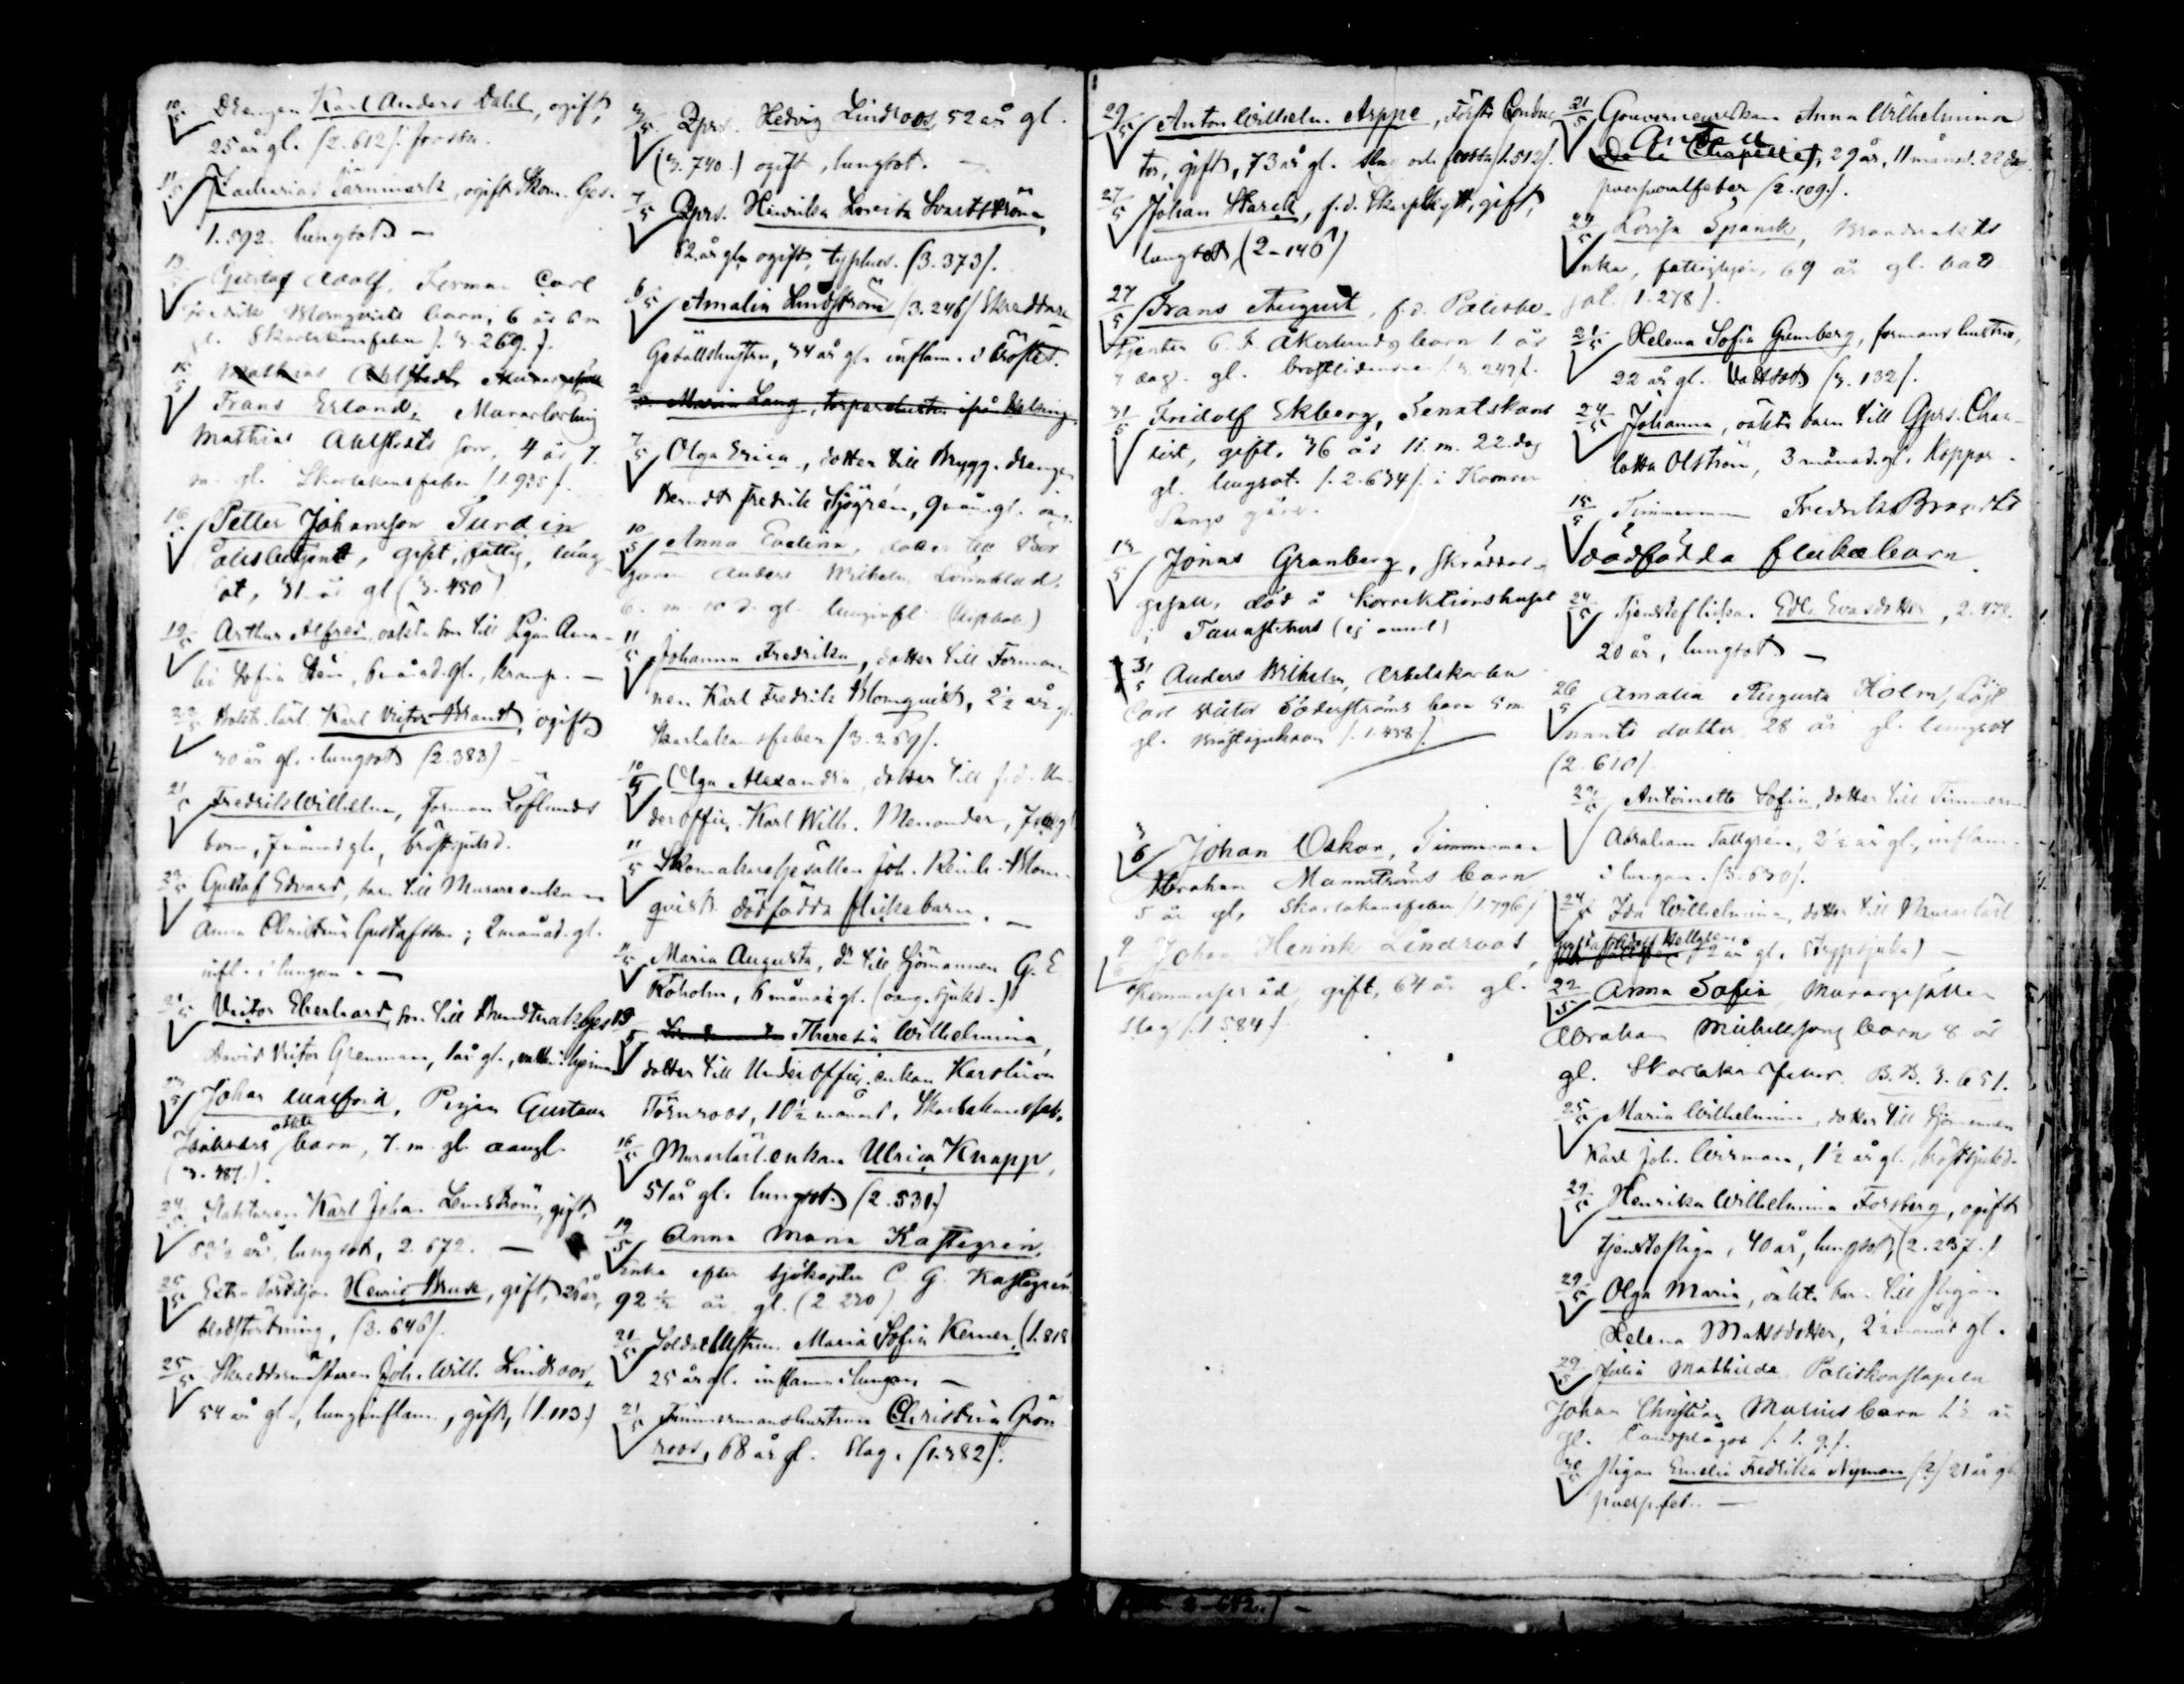 10/5 Drengen Karl Anders Dahl, ogift,
25 år gl. (2.612). frossa.
11/5 Zacharias Järnmark, ogift Skom. Ges.
1.592. lungsot. —
13/5 Gustaf Adolf, Forman Carl
Fredrik Blomqvists barn, 6 år 6 m
gl. Skarlakansfeber (3.269.).
15/5 Mathias Ahlstedt
Frans Erland, Murarlärling
Mathias Ahlstedts son, 4 år 7.
m. gl. Skarlakansfeber (1.935).
16/5 Petter Johansson Turdin
Polisbetjent, gift, fattig, lung-
sot, 31 år gl (3.450)
19/5 Arthur Alfred, oäkta son till Pigan Ama-
lia Sofia Sten, 6 månad. gl., kramp. —
22/5 Karl Victor Brandt, ogift
30 år gl. lungsot (2.383) —
21/5 Fredrik Wilhelm, Forman Löflunds
barn, 7 månad gl., bröstsjukd.
23/5 Gustaf Edvard, barn till Murareenkan
Anna Christina Gustafsson; 2 månad. gl.
infl. i lungan. —
21/5 Victor Eberhard, son till
David Victor Grenman, 1 år gl., vatten i hjernan
Johan, Pigan Gustava
oäkta
barn, 7. m. gl.
(3.387.).
24/5 Statkaren Karl Johan Lemström, gift,
52½ år, lungsot, 2.672. —
25/5 Extra Postiljon Henric Brusk, gift, 28 år,
blodstörtning, (3.646).
25/5 Skreddaremästaren Joh. Wilh. Lindroos,
54 år gl., lunginflam., gift, (1.113.)
4/5 Qprs. Hedvig Lindroos, 52 år gl.
(3.740.) ogift, lungsot. —
7/5 Qprs. Henrika Lovisa Svartström,
62 år gl., ogift, typhus. (3.373).
6/5 Amalia Lindström (3.246) Skreddare
Gesällshustru, 34 år gl. inflam. i bröstet.
2 Maria Lang, torparehustru ifrån Helsinge
7/5 Olga Erica, dotter till Brygg. drengen
Berndt Fredrik Sjögrén, 9 mån. gl.
10/5 Anna Evelina, dotter till Bor
garen Anders Wilhelm Lönnblad
6. m. 10 d. gl. lunginfl.
11/5 Johanna Fredrika, dotter till Forman-
nen Karl Fredrik Blomqvist, 2½ år gl.
Skarlakansfeber (3.269).
10/5 Olga Alexandra, dotter till f.d. Un-
deroffic. Karl Wilh. Menander, 7
11/5 Skomakaregesällen Joh. Reinh. Blom-
qvists dödfödda flickebarn. —
11/5 Maria Augusta, dr till Sjömannen G. E
Röholm, 6 månad gl. (oäng. sjukd.)
13/5 Theresia Wilhelmina,
dotter till Underoffic. enkan Karolina
Törnroos, 10½ månad, Skarlakansfeb.
16/5 Murarlärl. enkan Ulrica Knapp,
51 år gl. lungsot. (2.531.)
19/5 Anna Maria Kastegrén,
Enka efter sjökapten C. G. Kastegrén,
92½ år gl. (2.220)
21/5 Soldathustrun. Maria Sofia Kerner, (1.818
25 år gl. inflam. i lungan. —
21/5 Timmermanshustrun Christina Grön
roos, 68 år gl. Slag. (1.382).
29/5 Anton Wilhelm Arppe, Förste Conduc
tor, gift, 73 år gl. slag och frossa (1.512).
27/5 Johan Starck, f.d. Skarpskytt, gift,
lungsot, (2-146)
27/5 Frans August, f.d. Polisbe-
tjenten C. F. Åkerlunds barn 1 år
7 dag. gl. bröstlidande (3.247).
31/5 Fridolf Ekberg, Senatskans
list, gift, 36 år 11. m. 22. dag
gl. lungsot. (2.634) i Komm
gård.
14/5 Jonas Granberg, skräddar-
gesäll, död å Korrektionshuset
i Tavastehus (ej anml)
31/5 Anders Wilhelm, Arbetskarlen
Carl Victor Söderströms barn 5 m.
gl. Bröstsjukdom (1.438).
3/6 Johan Oskar, Timmerman
Abraham Mannströms barn
5 år gl, skarlakansfeber (1.796)
9/6 Johan Henrik Lindroos,
Kommerseråd, gift, 64 år gl.
slag (1.584).
21/5 Gouvernentskan Anna Wilhelmina
Antell
De la Chapelle, 29 år, 11 månad. 22 dag.
puerperalfeber (2.109.).
24/5 Lovisa Spansk, Brandvakts
enka, fattighjon, 69 år gl.
1.278).
21/5 Helena Sofia Grunberg, formans hustru,
22 år gl. Vattsot (3.132).
24/5 Johanna, oäkta barn till Qprs. Char-
lotta Olström, 3 månad. gl. Koppor.
15/5 Timmerman Fredrik Brandts
dödfödda flickebarn.
24/5 Tjensteflickan Edla Evasdotter, 2.478.
20 år, lungsot. —
26/5 Amalia Augusta Holm, Löjt
nants dotter, 28 år gl. lungsot
(2.610).
29/5 Antoinette Sofia, dotter till Timmerm
Abraham Tallgrén, 2½ år gl., inflam.
i lungan. (3.630).
24/5 Ida Wilhelmina, dotter till Murarlärl
Hellgren ½ år gl. Strypsjuka) —
22/5 Anna Sofia Murargesällen
Abraham Michelssons barn 8 år
gl. Skarlakansfeber. B.B. 3.651.
25/5 Maria Wilhelmina, dotter till Sjömannen
Karl Joh. Wirman, 1½ år gl., bröstsjukd.
29/5 Henrika Wilhelmina Forsberg, ogift
tjensteflicka, 40 år, lungsot, (2.237.)
29/5 Olga Maria, oäkt. barn till Pigan
Helena Mattsdotter, 2½ månad gl.
29/5 Julia Mathilda Poliskonstapeln
Johan Christian Musius barn 1½ år
gl. Tandplågor (1.9.).
30/5 Pigan Emelia Fredrika Nyman (2) 21 år gl.
puerp. feb. —